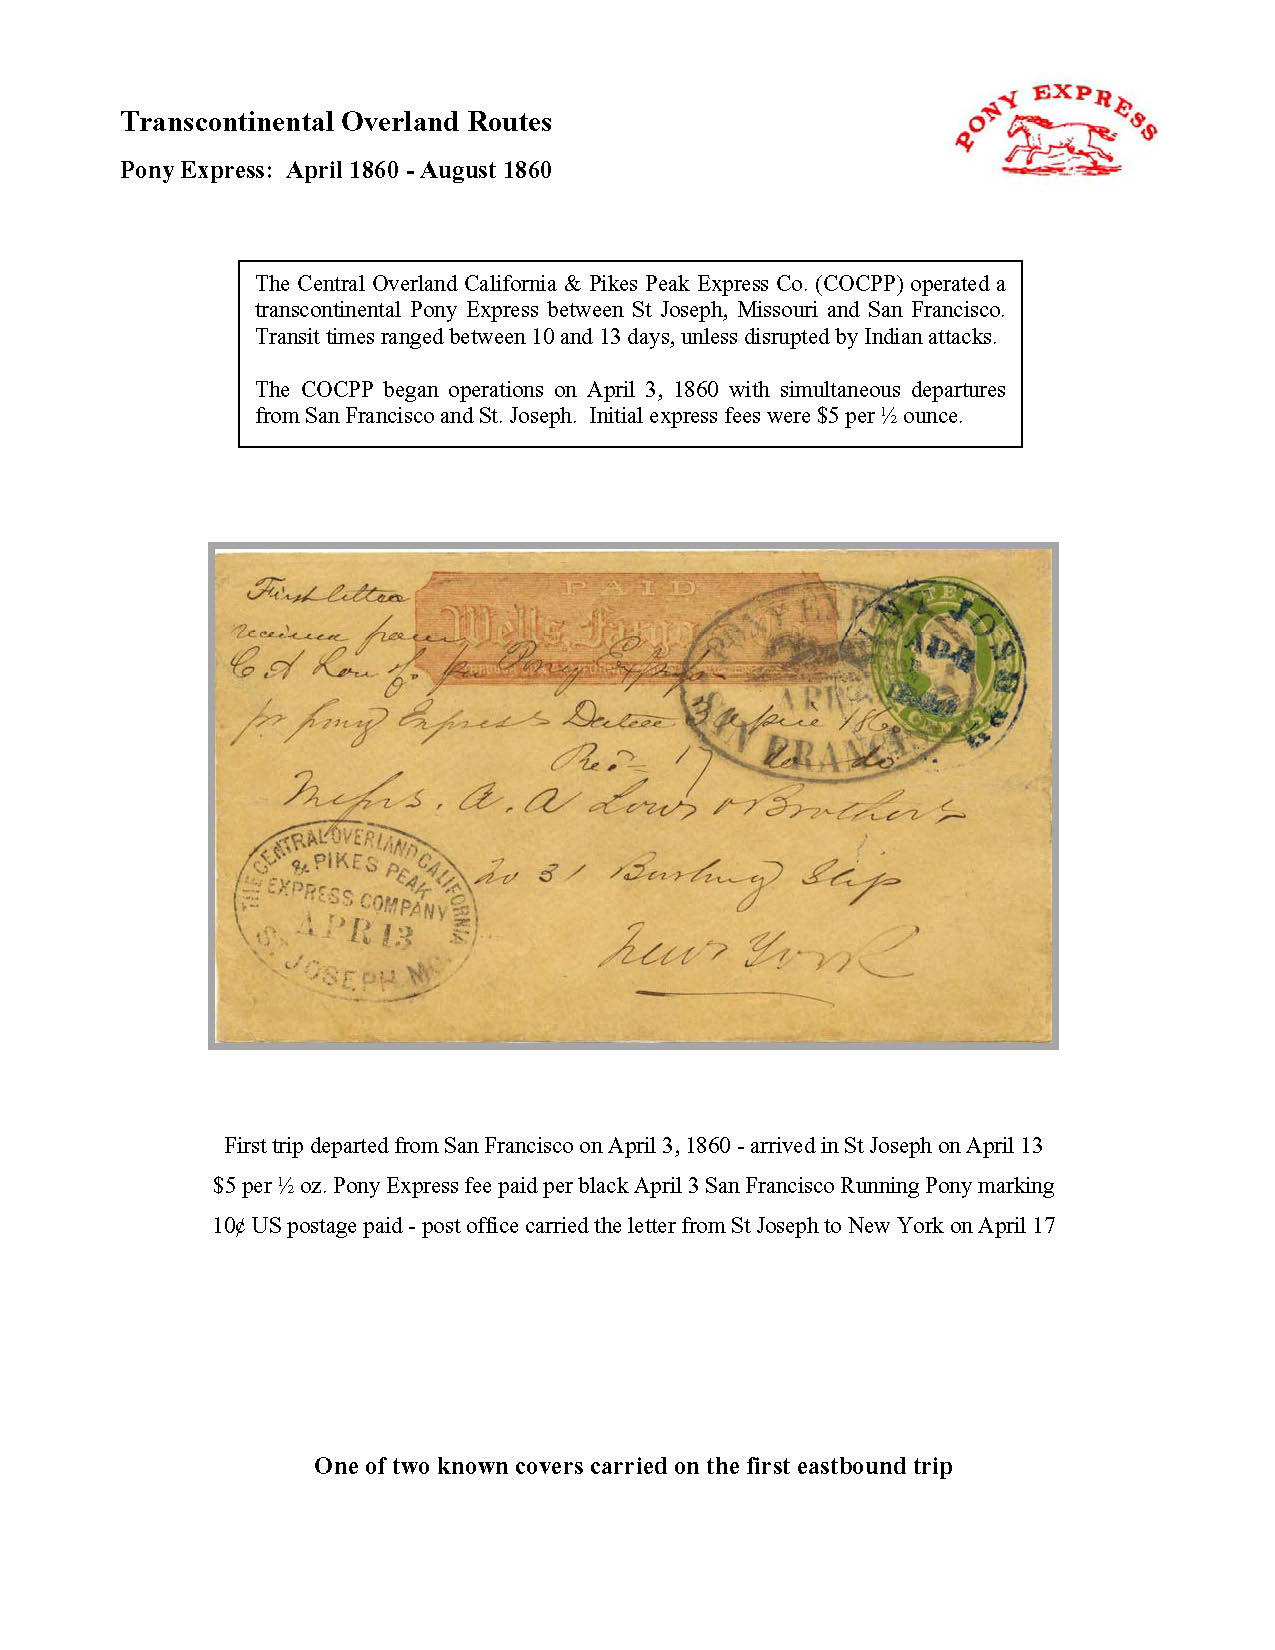 Transcontinental Overland Routes
PONY EXPRESS
Pony Express: April 1860 - August 1860
The Central Overland California & Pikes Peak Express Co. (COCPP) operated a
transcontinental Pony Express between St Joseph, Missouri and San Francisco.
Transit times ranged between 10 and 13 days, unless disrupted by Indian attacks.
The COCPP began operations on April 3, 1860 with simultaneous departures
from San Francisco and St. Joseph. Initial express fees were $5 per ½ ounce.
PAID
Wells, Fargo
First letter
received from
C A Low
pr Pony Express
PONY EXPR
APR 3
SAN FRANCI
TEN
JOSE
APR
pr pony Express Dated 3 April 186
Rec 17 do do
Messrs. A. A Low & Brothers
No 31 Burling Slip
New York
THE CENTRAL OVERLAND CALIFORNIA
& PIKES PEAK
EXPRESS COMPANY
APR 13
ST. JOSEPH MO.
First trip departed from San Francisco on April 3, 1860 - arrived in St Joseph on April 13
$5 per ½ oz. Pony Express fee paid per black April 3 San Francisco Running Pony marking
10¢ US postage paid - post office carried the letter from St Joseph to New York on April 17
One of two known covers carried on the first eastbound trip